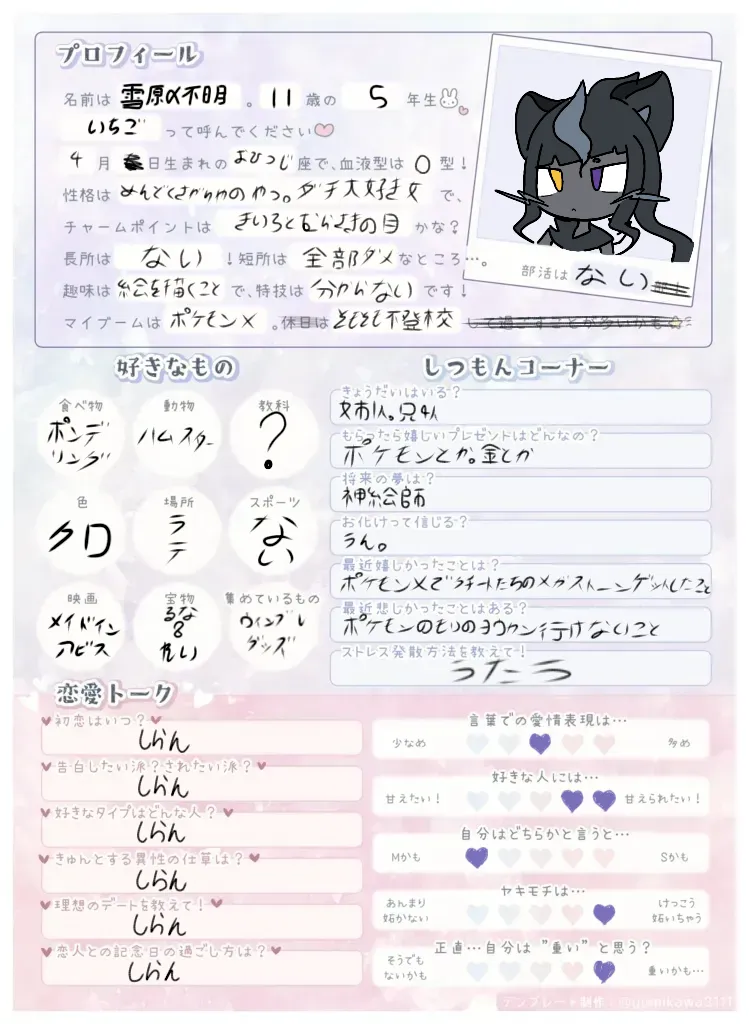 プロフィール
名前は 雪原α不明 。 11 歳の 5 年生
いちご って呼んでください
4 月 日生まれの おひつじ 座で、血液型は O 型!
性格は めんどくさがりやのやつ。ガチ大好き女 で、
チャームポイントは きいろとむらさきの目 かな?
長所は ない !短所は 全部ダメ なところ…。
趣味は 絵を描くこと で、特技は 分からない です!
マイブームは ポケモン× 。休日は そもそも不登校 して過ごすことが多いかも
部活は ない
好きなもの
食べ物
ポンデ
リング
動物
ハムスター
教科
?
色
クロ
場所
ラ
テ
スポーツ
ない
映画
メイドイン
アビス
宝物
るな
&
れい
集めているもの
ウィンブレ
グッズ
しつもんコーナー
きょうだいはいる?
妹1人。兄4人
もらったら嬉しいプレゼントはどんなの?
ポケモンとか。金とか
将来の夢は?
神絵師
お化けって信じる?
うん。
最近嬉しかったことは?
ポケモン×でラチートたちのメガストーンゲットしたこと
最近悲しかったことはある?
ポケモンのもりのヨウカン行けないこと
ストレス発散方法を教えて!
うたう
恋愛トーク
初恋はいつ?
しらん
告白したい派?されたい派?
しらん
好きなタイプはどんな人?
しらん
きゅんとする異性の仕草は?
しらん
理想のデートを教えて!
しらん
恋人との記念日の過ごし方は?
しらん
言葉での愛情表現は…
少なめ 多め
好きな人には…
甘えたい! 甘えられたい!
自分はどちらかと言うと…
Mかも Sかも
ヤキモチは…
あんまり
妬かない
けっこう
妬いちゃう
正直…自分は"重い"と思う?
そうでも
ないかも
重いかも…
テンプレート制作:@yumikawa3111